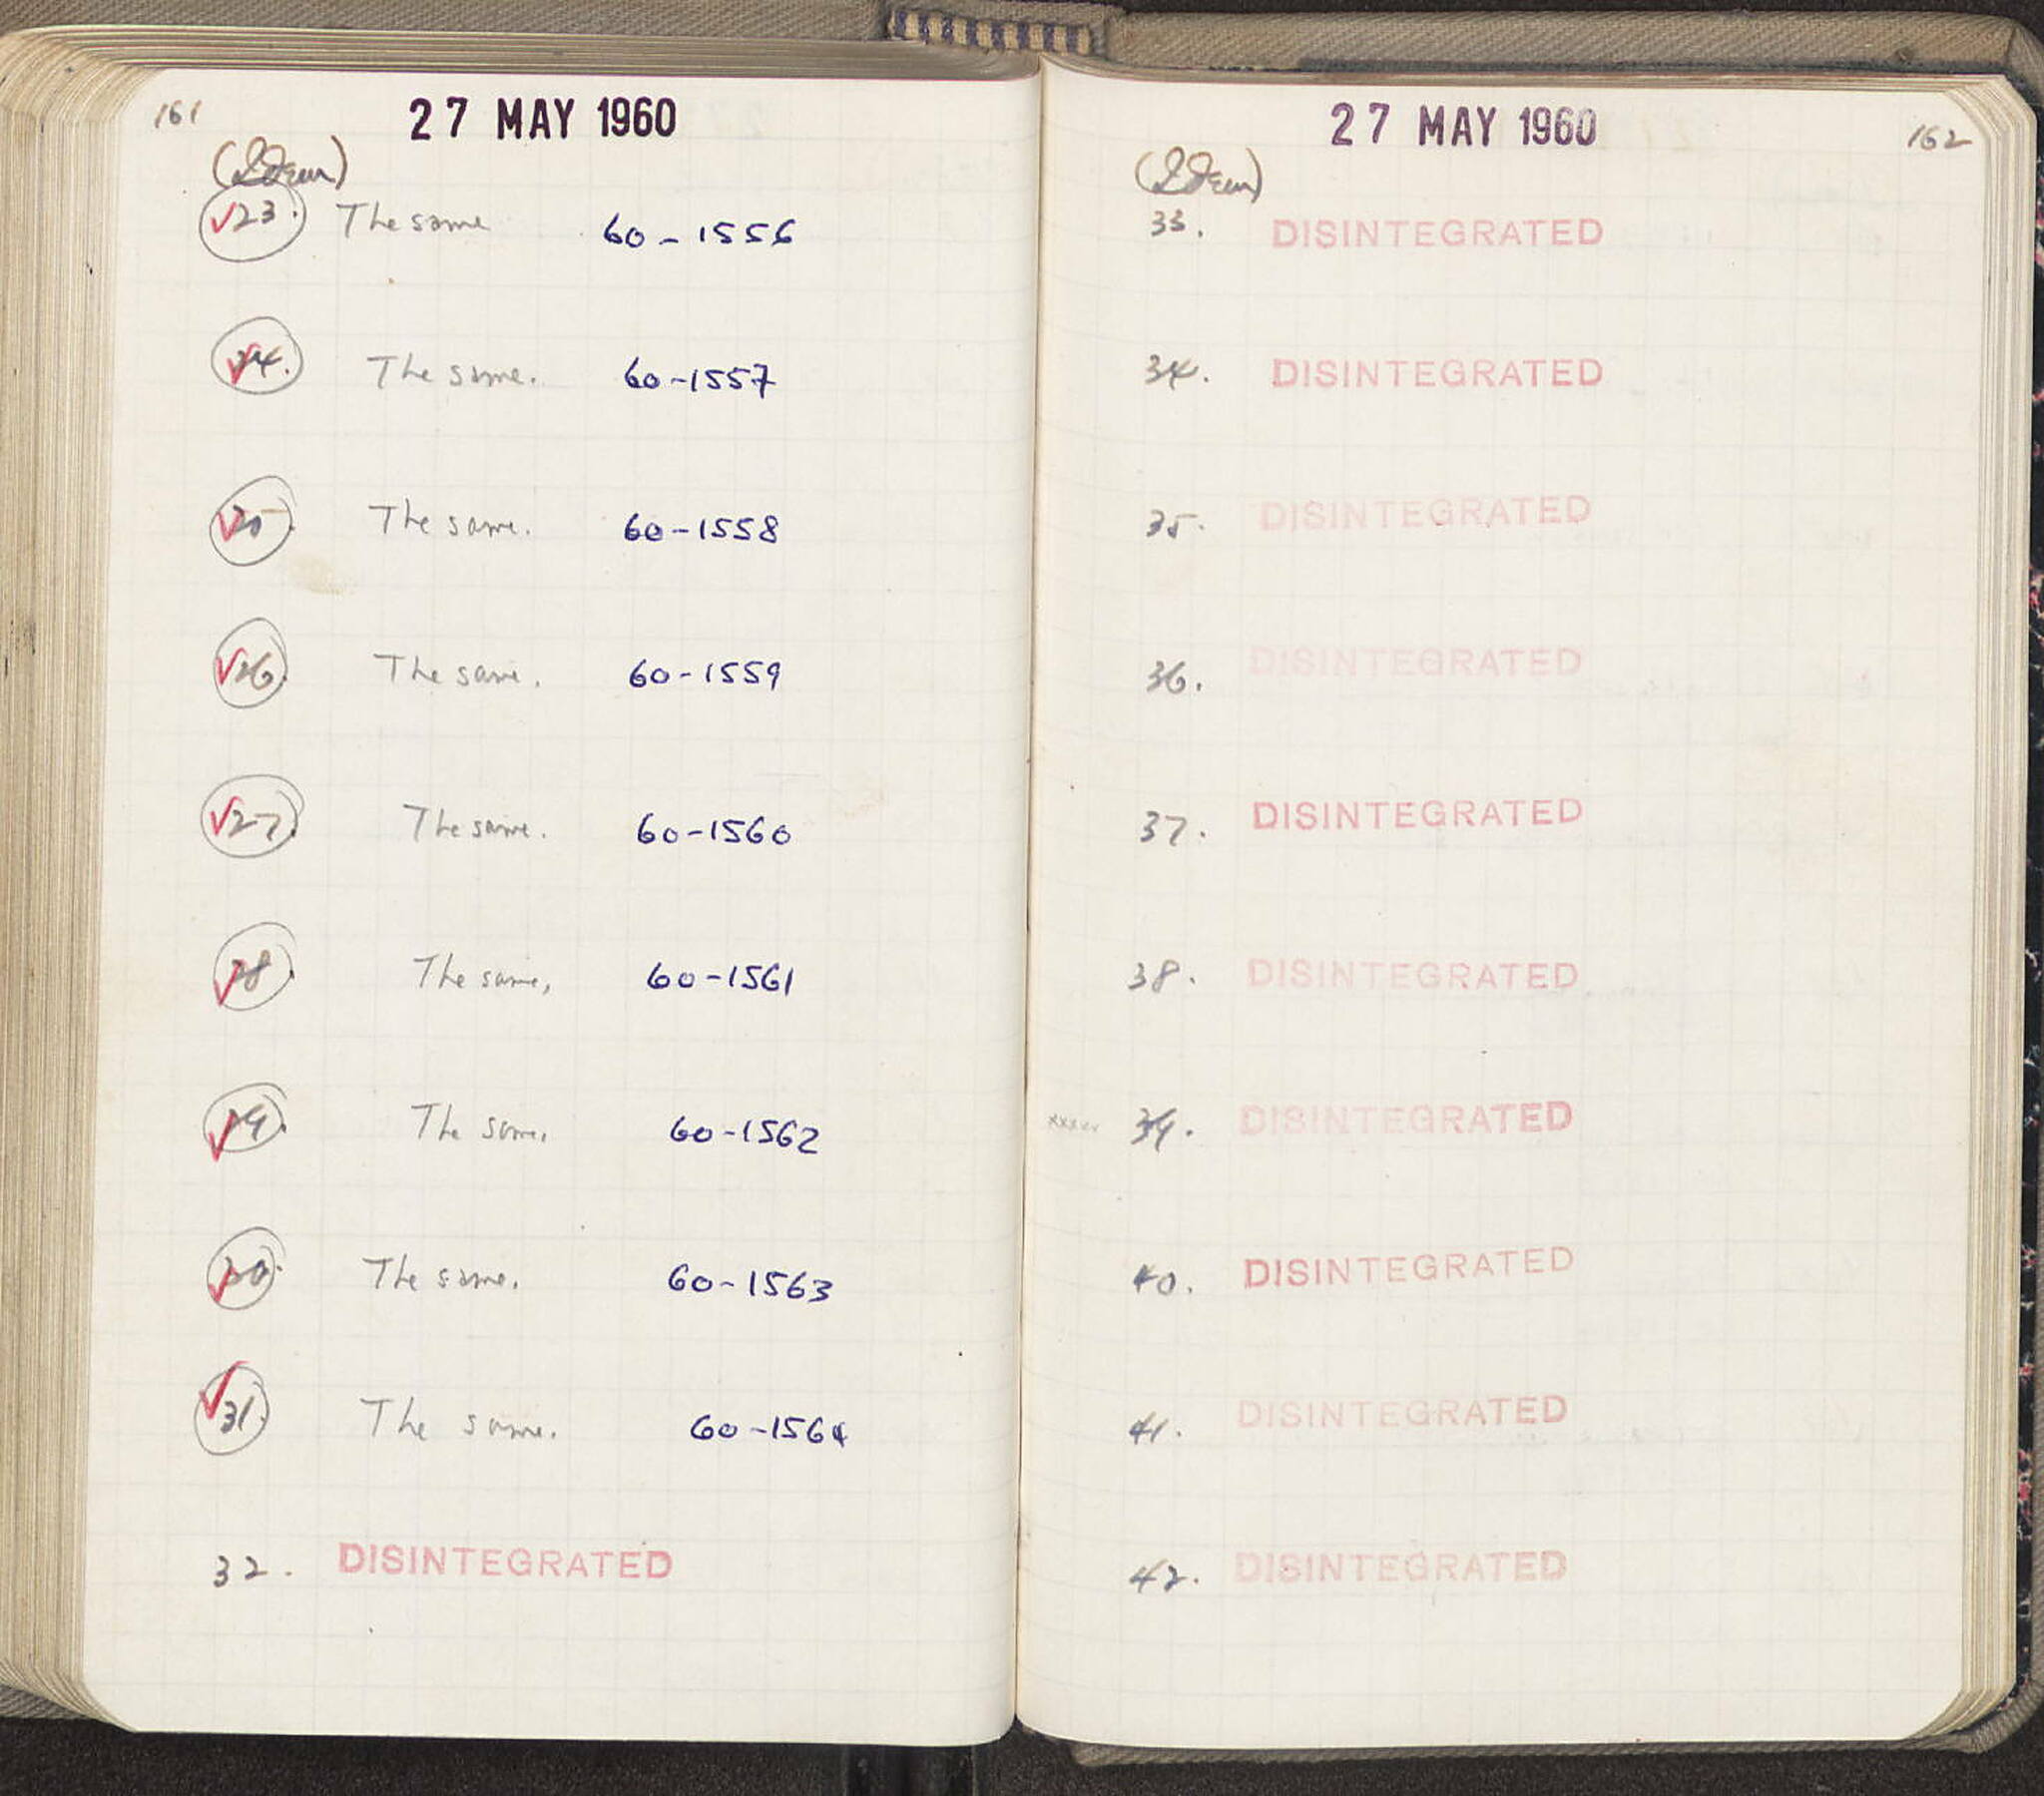 161
27 MAY 1960
(Idem)
23. The same 60-1556
24. The same. 60-1557
25. The same. 60-1558
26. The same. 60-1559
27. The same. 60-1560
28. The same, 60-1561
29. The same. 60-1562
30. The same. 60-1563
31. The same. 60-1564
32. DISINTEGRATED
27 MAY 1960
162
(Idem)
33. DISINTEGRATED
34. DISINTEGRATED
35. DISINTEGRATED
36. DISINTEGRATED
37. DISINTEGRATED
38. DISINTEGRATED
xxxxx 39. DISINTEGRATED
40. DISINTEGRATED
41. DISINTEGRATED
42. DISINTEGRATED